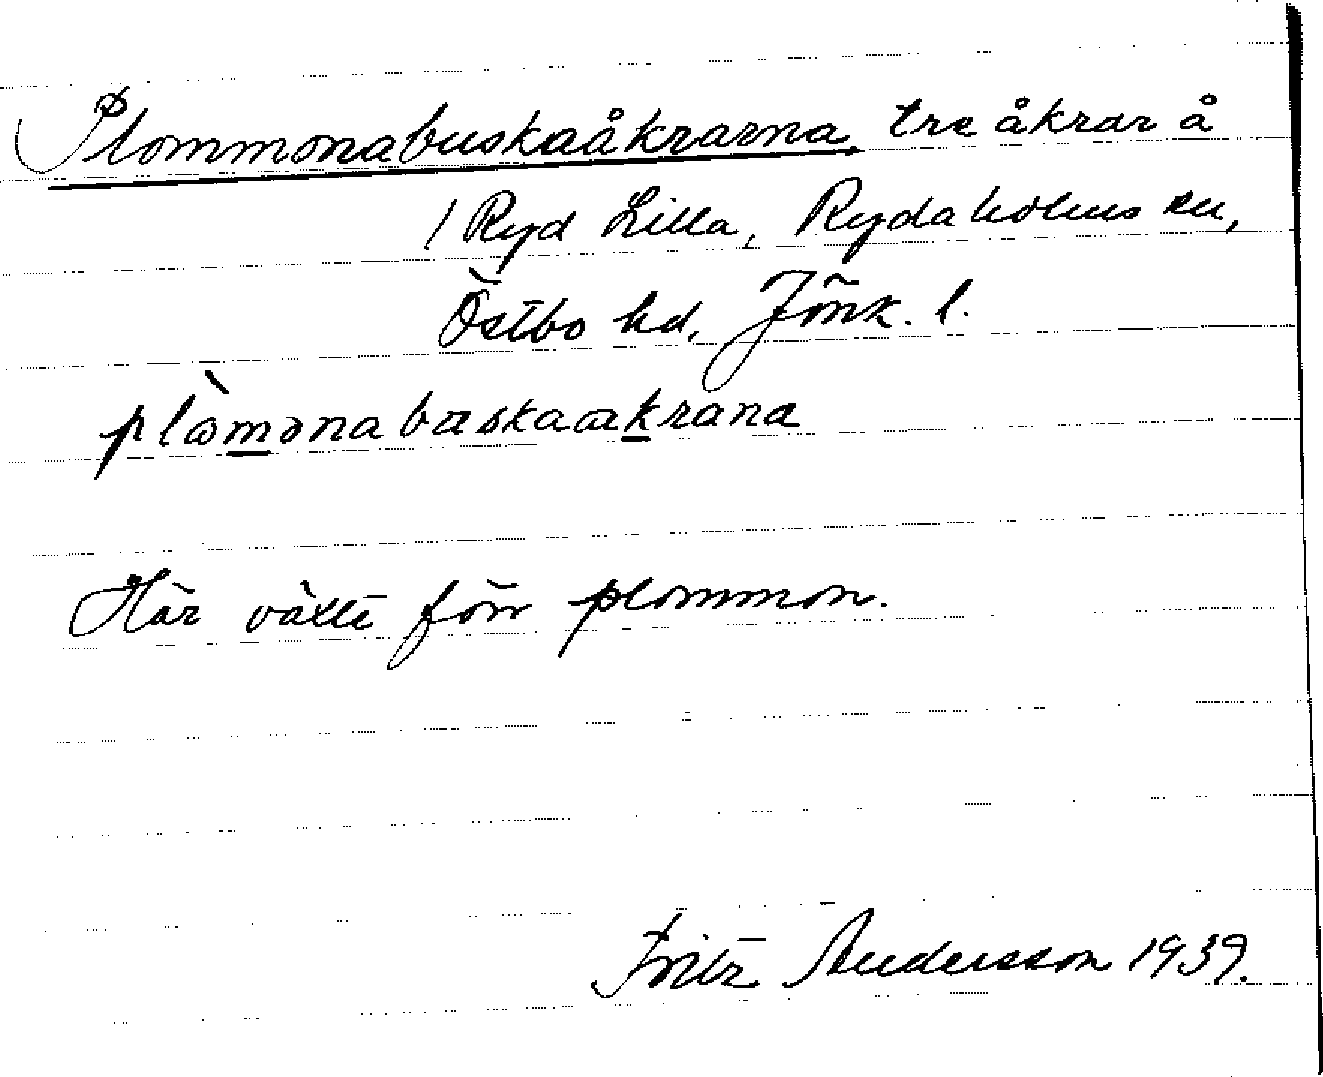 Plommonabuskaåkrarna, tre åkrar å
1 Ryd Lilla, Rydaholms sn,
Östbo hd, Jönk. l.
plòmɔnabuskaakrana
Här växte förr plommon.
Fritz Andersson 1939.